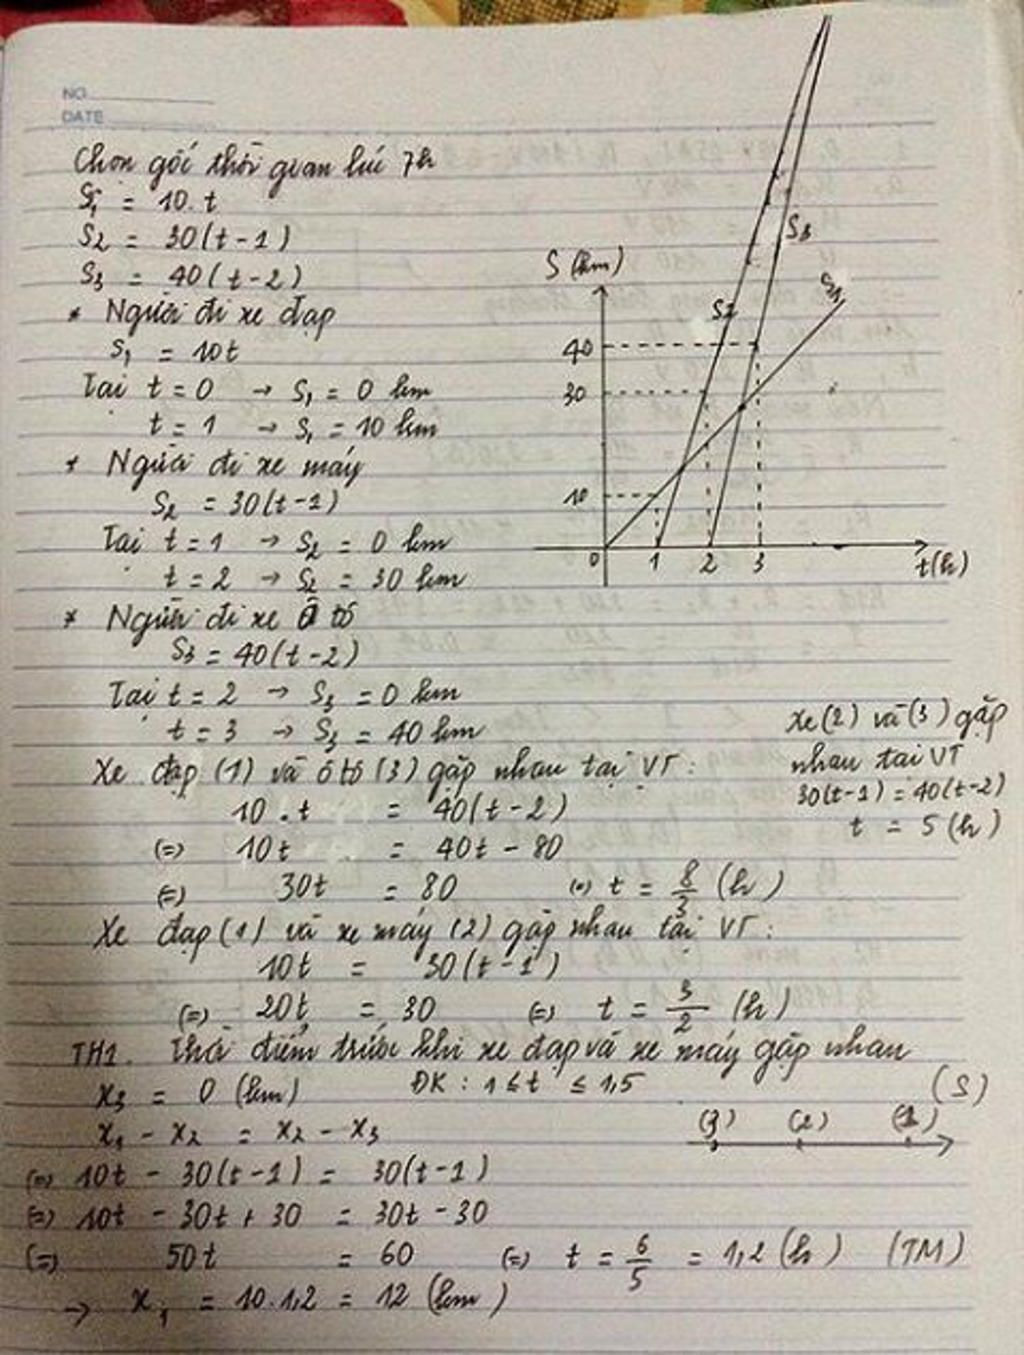 NO.
DATE
Chọn gốc thời gian lúc 7h
S₁ = 10.t
S₂ = 30(t-1)
S₃ = 40(t-2)
* Người đi xe đạp
S₁ = 10t
Tại t = 0 → S₁ = 0 km
t = 1 → S₁ = 10 km
* Người đi xe máy
S₂ = 30(t-1)
Tại t = 1 → S₂ = 0 km
t = 2 → S₂ = 30 km
* Người đi xe Ô tô
S₃ = 40(t-2)
Tại t = 2 → S₃ = 0 km
t = 3 → S₃ = 40 km
S (km)
S3
S1
S2
40
30
10
0 1 2 3 t(h)
Xe (2) và (3) gặp
nhau tại VT
30(t-1) = 40(t-2)
t = 5 (h)
Xe đạp (1) và ô tô (3) gặp nhau tại VT:
10.t = 40(t-2)
(=) 10t = 40t - 80
(=) 30t = 80 (=) t = 8/3 (h)
Xe đạp (1) và xe máy (2) gặp nhau tại VT:
10t = 30(t-1)
(=) 20t = 30 (=) t = 3/2 (h)
TH1. Thời điểm trước khi xe đạp và xe máy gặp nhau
x₃ = 0 (km) ĐK: 1 ≤ t ≤ 1,5
x₁ - x₂ = x₂ - x₃
(S)
(3) (2) (1)
(=) 10t - 30(t-1) = 30(t-1)
(=) 10t - 30t + 30 = 30t - 30
(=) 50t = 60 (=) t = 6/5 = 1,2 (h) (TM)
→ x₁ = 10.1,2 = 12 (km)